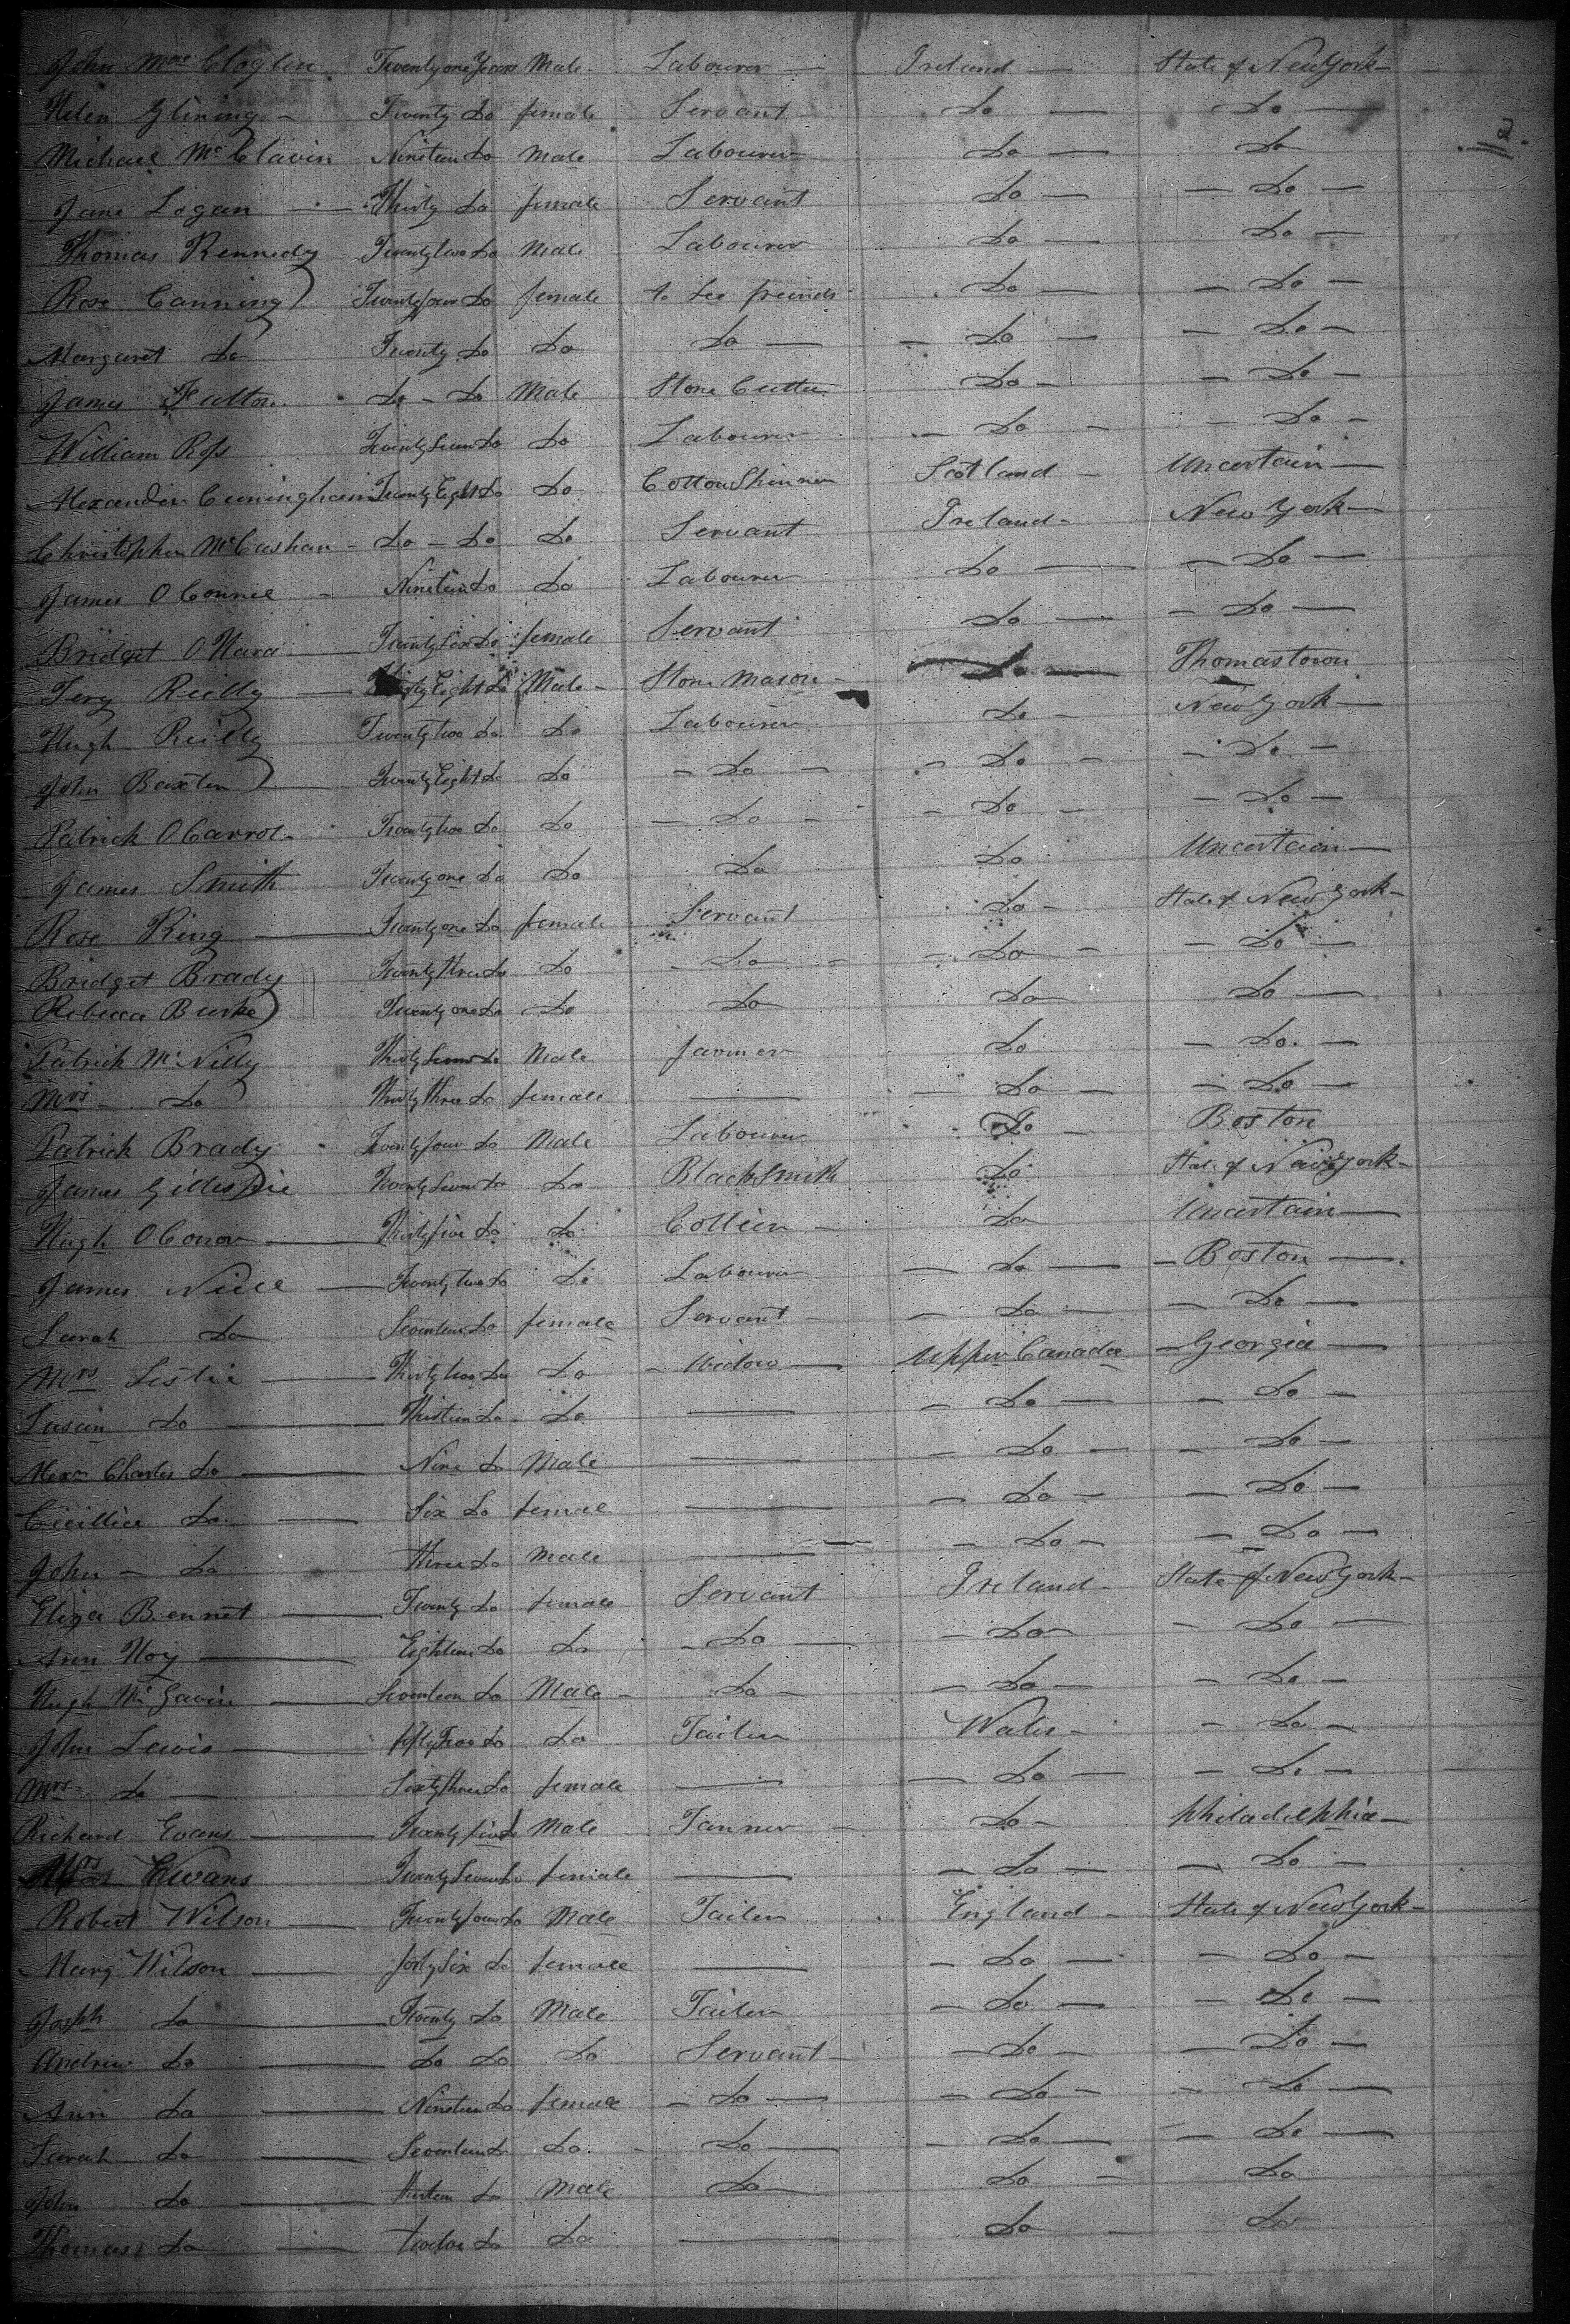 John Mac Cloglin Twenty one Years Male Labourer Ireland State of New York
Helen Glining Twenty Do female Servant Do Do
Michael Mc Clavin Nineteen Do Male Labourer Do Do
Jane Logan Thirty Do female Servant Do Do
Thomas Kennedy Twenty two Do Male Labourer Do Do
Rose Canning Twenty four Do female to see freinds Do Do
Margaret Do Twenty Do Do Do Do Do
James Fulton Do Do Male Stone Cutter Do Do
William Ross Twenty Seven Do Do Labourer Do Do
Alexander Cuningham Twenty Eight Do Do Cotton Shinner Scotland Uncertain
Christopher McCashan Do Do Do Servant Ireland New York
James O Connel Nineteen Do Do Labourer Do Do
Bridget O Hara Twenty Six Do female Servant Do Do
Tery Reilly Eight Do Male Stone Mason Do Thomastown
Hugh Reilly Twenty two Do Do Labourer Do New York
John Baxter Twenty Eight Do Do Do Do Do
Patrick O Carrol Twenty two Do Do Do Do Do
James Smith Twenty one Do Do Do Do Uncertain
Rose King Twenty one Do female Servant Do State of New York
Bridget Brady Twenty three Do Do Do Do Do
Rebecca Burke Twenty one Do Do Do Do Do
Patrick Mc Nilly Thirty Seven Do Male farmer Do Do
Mrs Do Thirty three Do female Do Do
Patrick Brady Twenty four Do Male Labourer Do Boston
James Gillespie Twenty Seven Do Do Black Smith Do State of New York
Hugh O Conor Thirty five Do Do Collier Do Uncertain
James Niel Twenty two Do Do Labourer Do Boston
Sarah Do Seventeen Do female Servant Do Do
Mrs Leslie Thirty two Do Do Widow Upper Canada Georgia
Susan Do Thirteen Do Do Do Do
Alexr Charles Do Nine Do Male Do Do
Cicillia Do Six Do female Do Do
John Do three Do Male Do Do
Eliza Bennet Twenty Do female Servant Ireland State of New York
Ann Hoy Eighteen Do Do Do Do Do
Hugh Mc Gavin Seventeen Do Male Do Do Do
John Lewis fifty Two Do Do Tailer Wales Do
Mrs Do Sixty three Do female Do Do
Richard Evans Twenty five Do Male Tanner Do Philadelphia
Mrs Ewans Twenty Seven Do female Do Do
Robert Wilson Twenty four Do Male Tailer England State of New York
Mary Wilson forty Six Do female Do Do
Joseph Do Twenty Do Male Tailer Do Do
Andrew Do Do Do Do Servant Do Do
Ann Do Nineteen Do female Do Do Do
Sarah Do Seventeen Do Do Do Do Do
John Do thirteen Do Male Do Do Do
Thomas Do twelve Do Do Do Do